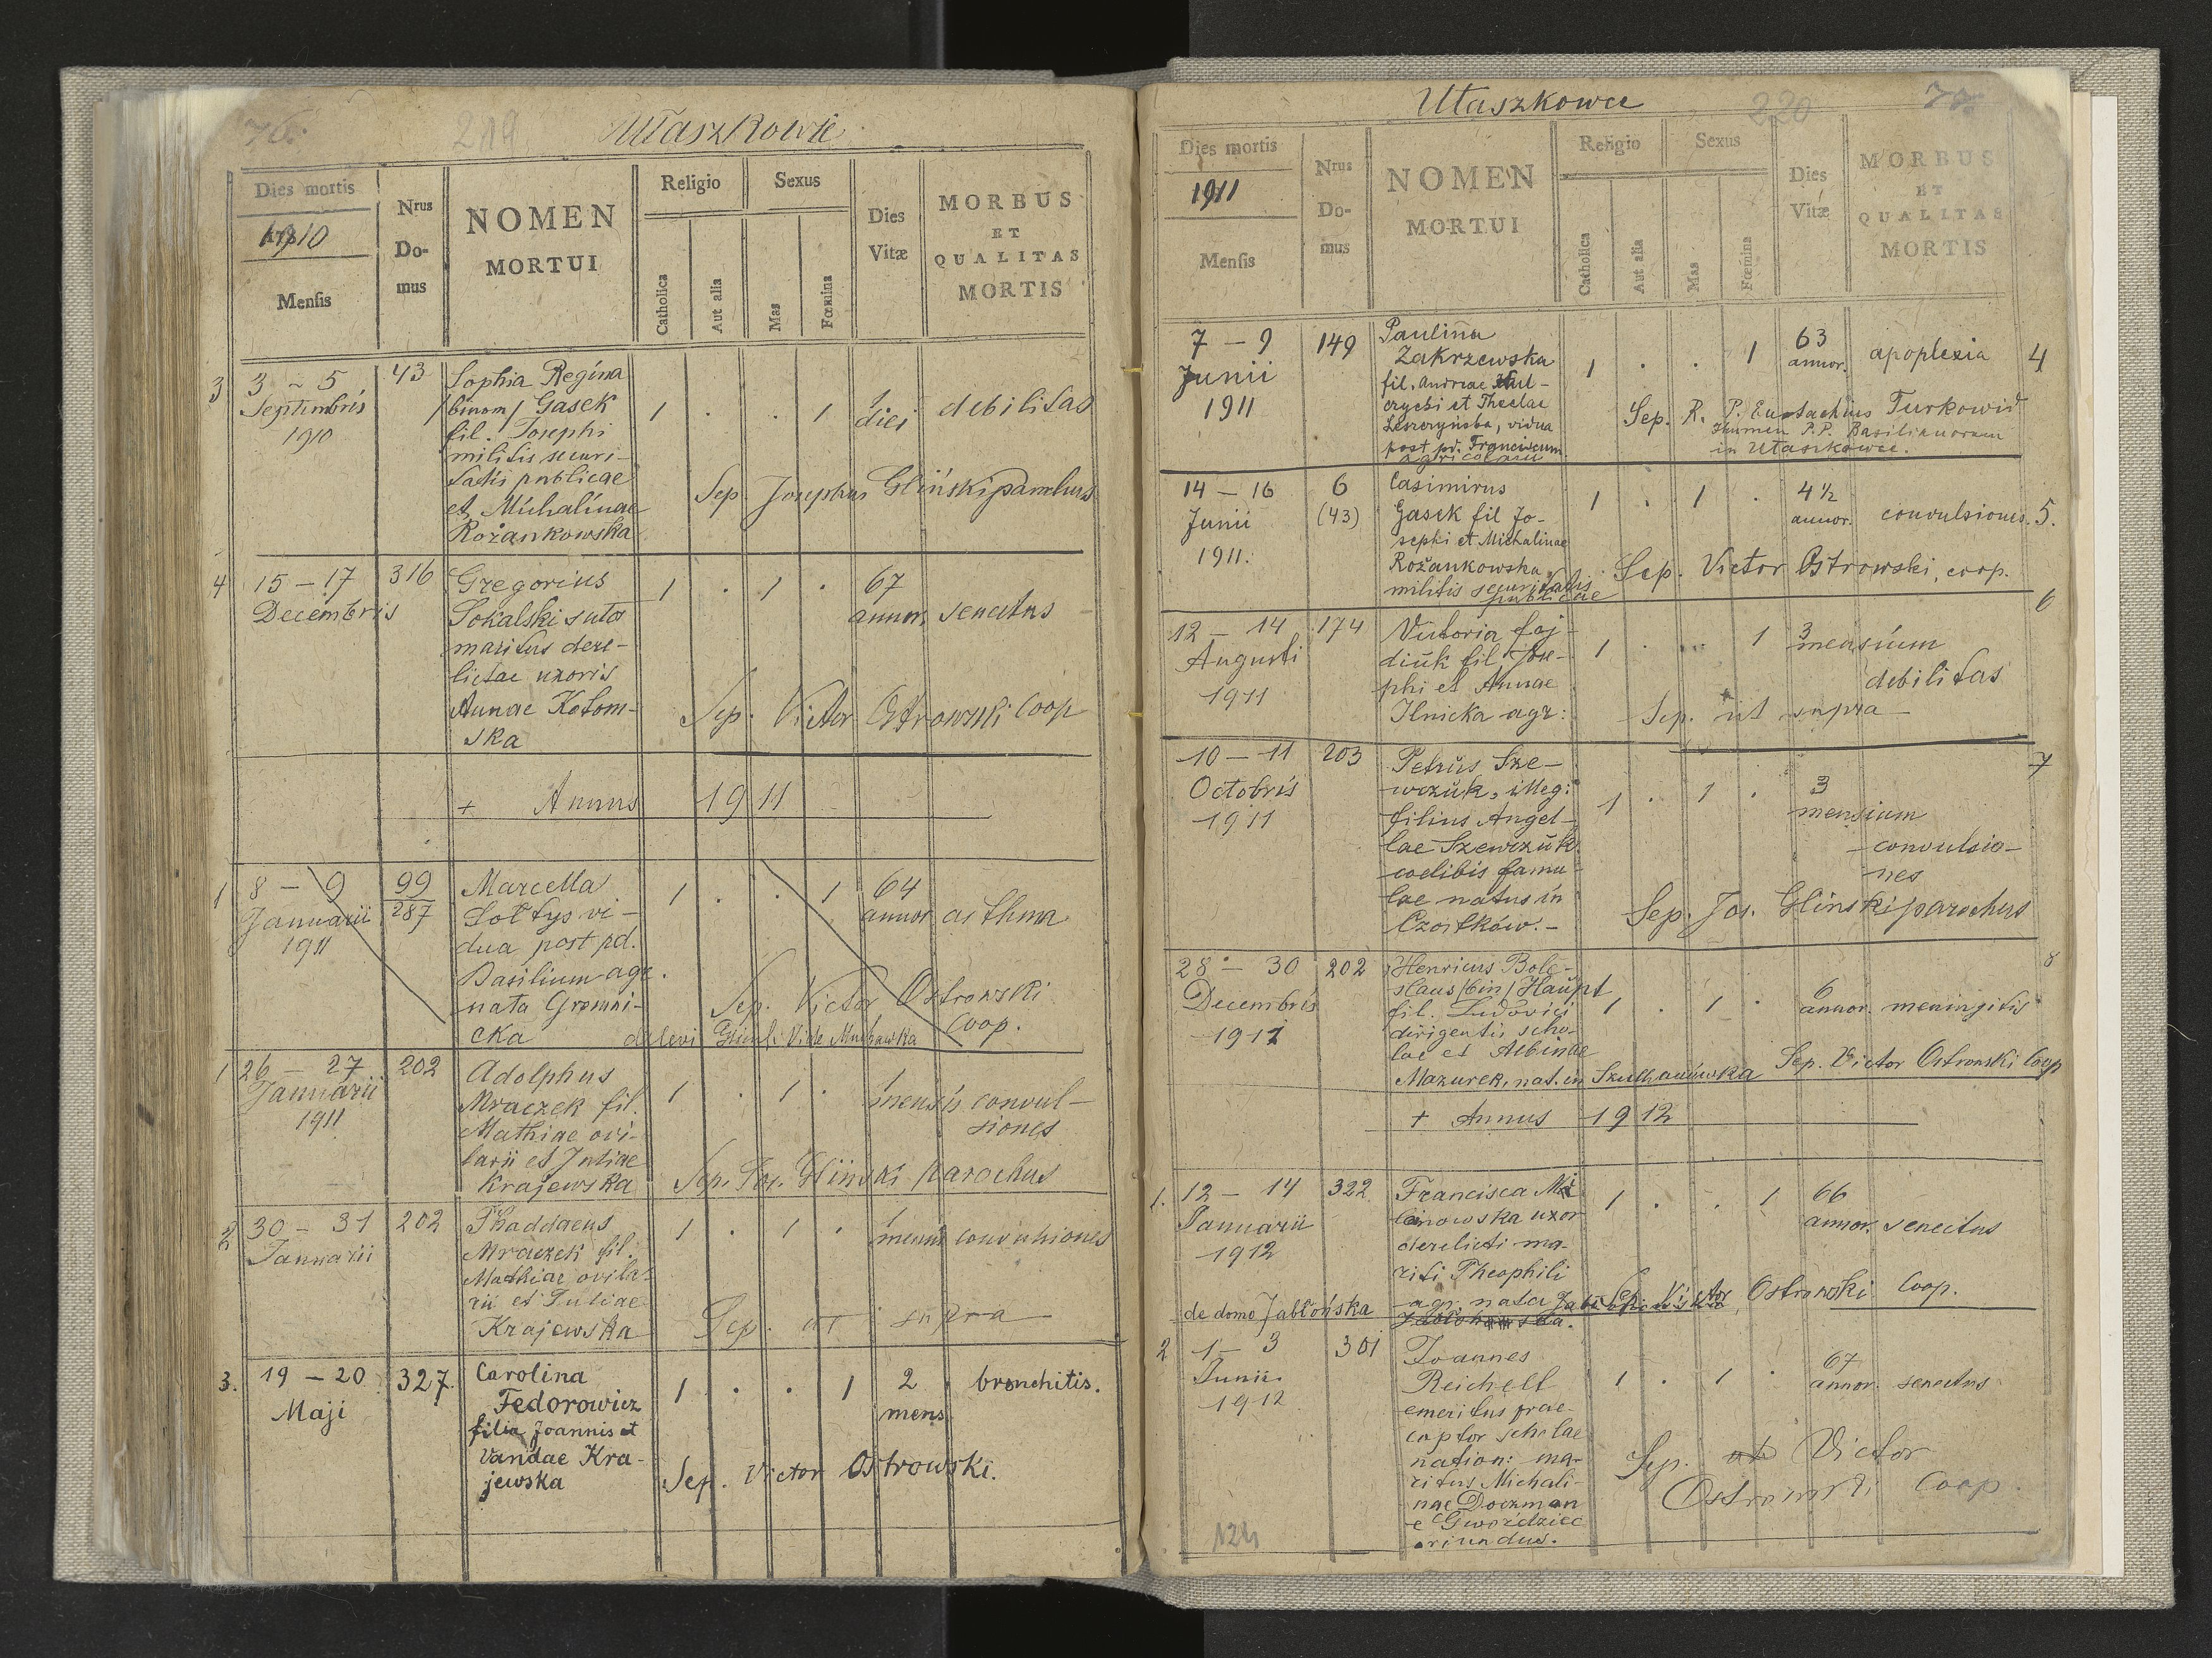 76.
219
Ułaszkowce
Dies mortis
1910
Mensis
Nrus
Do-
mus
NOMEN
MORTUI
Religio
Catholica
Aut alia
Sexus
Mas
Fœmina
Dies
Vitæ
MORBUS
ET
QUALITAS
MORTIS
3
3 - 5
Septembris
1910
43
Sophia Regina
/binom/ Gasek
fil. Josephi
militis securi-
tatis publicae
et Michalinae
Rożankowska
1 . . 1
1
diei
debilitas
Sep. Josephus Gliński parochus
4
15 - 17
Decembris
316
Gregorius
Sokalski sutor
maritus dere-
lictae uxoris
Annae Kołom-
ska
1 . 1 .
67
annor.
senectus
Sep. Victor Ostrowski Coop
+ Annus 1911
1
8 - 9
Januarii
1911
99
287
Marcella
Sołtys vi-
dua post pd.
Basilium agr.
nata Gromni-
cka
1 . . 1
64
annor
asthma
Sep. Victor Ostrowski
Coop.
delevi Gliński Vide
1
26 - 27
Januarii
1911
202
Adolphus
Mraczek fil.
Mathiae ovi-
larii et Juliae
Krajewska
1 . 1 .
1
mensis
convul-
siones
Sep. Jos. Gliński parochus
2
30 - 31
Januarii
202
Thaddaeus
Mraczek fil.
Mathiae ovila-
rii et Juliae
Krajewska
1 . 1 .
1
mensis
convulsiones
Sep. ut supra
3.
19 - 20
Maji
327.
Carolina
Fedorowicz
filia Joannis et
Vandae Kra-
jewska
1 . . 1
2
mens.
bronchitis.
Sep. Victor Ostrowski.
Ułaszkowce
220
77.
Dies mortis
1911
Mensis
Nrus
Do-
mus
NOMEN
MORTUI
Religio
Catholica
Aut alia
Sexus
Mas
Fœmina
Dies
Vitæ
MORBUS
ET
QUALITAS
MORTIS
7 - 9
Junii
1911
149
Paulina
Zakrzewska
fil. Andreae
et Theclae
Leszczyńska, vidua
post pd. Franciscum
agricolam
1 . . 1
63
annor.
apoplexia
4
Sep. R. P. Eustachius
Ihumen P.P. Basilianorum
in Ułaszkowce.
14 - 16
Junii
1911.
6
(43)
Casimirus
Gasek fil Jo-
sephi et Michalinae
Rożankowska
militis securitatis
publicae
1 . 1 .
4 1/2
annor.
convulsiones.
5.
Sep. Victor Ostrowski, coop.
6
12 - 14
Augusti
1911
174
Victoria faj-
diuk fil. Jose-
phi et Annae
Ilnicka agr:
1 . .. 1
3
mensium
debilitas
Sep. ut supra
7
10 - 11
Octobris
1911
203
Petrus Sze-
wczuk, illeg:
filius Angel-
lae Szewczuk
coelibis famu-
lae natus in
Czortków. -
1 . 1 .
3
mensium
convulsio-
nes
Sep. Jos. Gliński parochus
8
28 - 30
Decembris
1911
202
Henricus Bole-
slaus /bin/ Haupt
fil. Ludovici
dirigentis scho-
lae et Albinae
Mazurek, nat. in
1 . 1 .
6
annor.
meningitis
Sep. Victor Ostrowski Coop
+ Annus 1912
1.
12 - 14
Januarii
1912
322
Francisca Ma
linowska uxor
derelicti ma-
riti Theophili
agr. nata
de domo Jabłońska
1 . . 1
66
annor.
senectus
Sep. Victor Ostrowski Coop.
2
1 - 3
Junii
1912
301
Joannes
Reichelt
emeritus prae-
ceptor scholae
nation: ma-
ritus Michali-
nae Doczman
e Gwoździec
oriundus.
1 . 1 .
67
annor.
senectus
Sep. ut Victor
Ostrowski Coop.
124